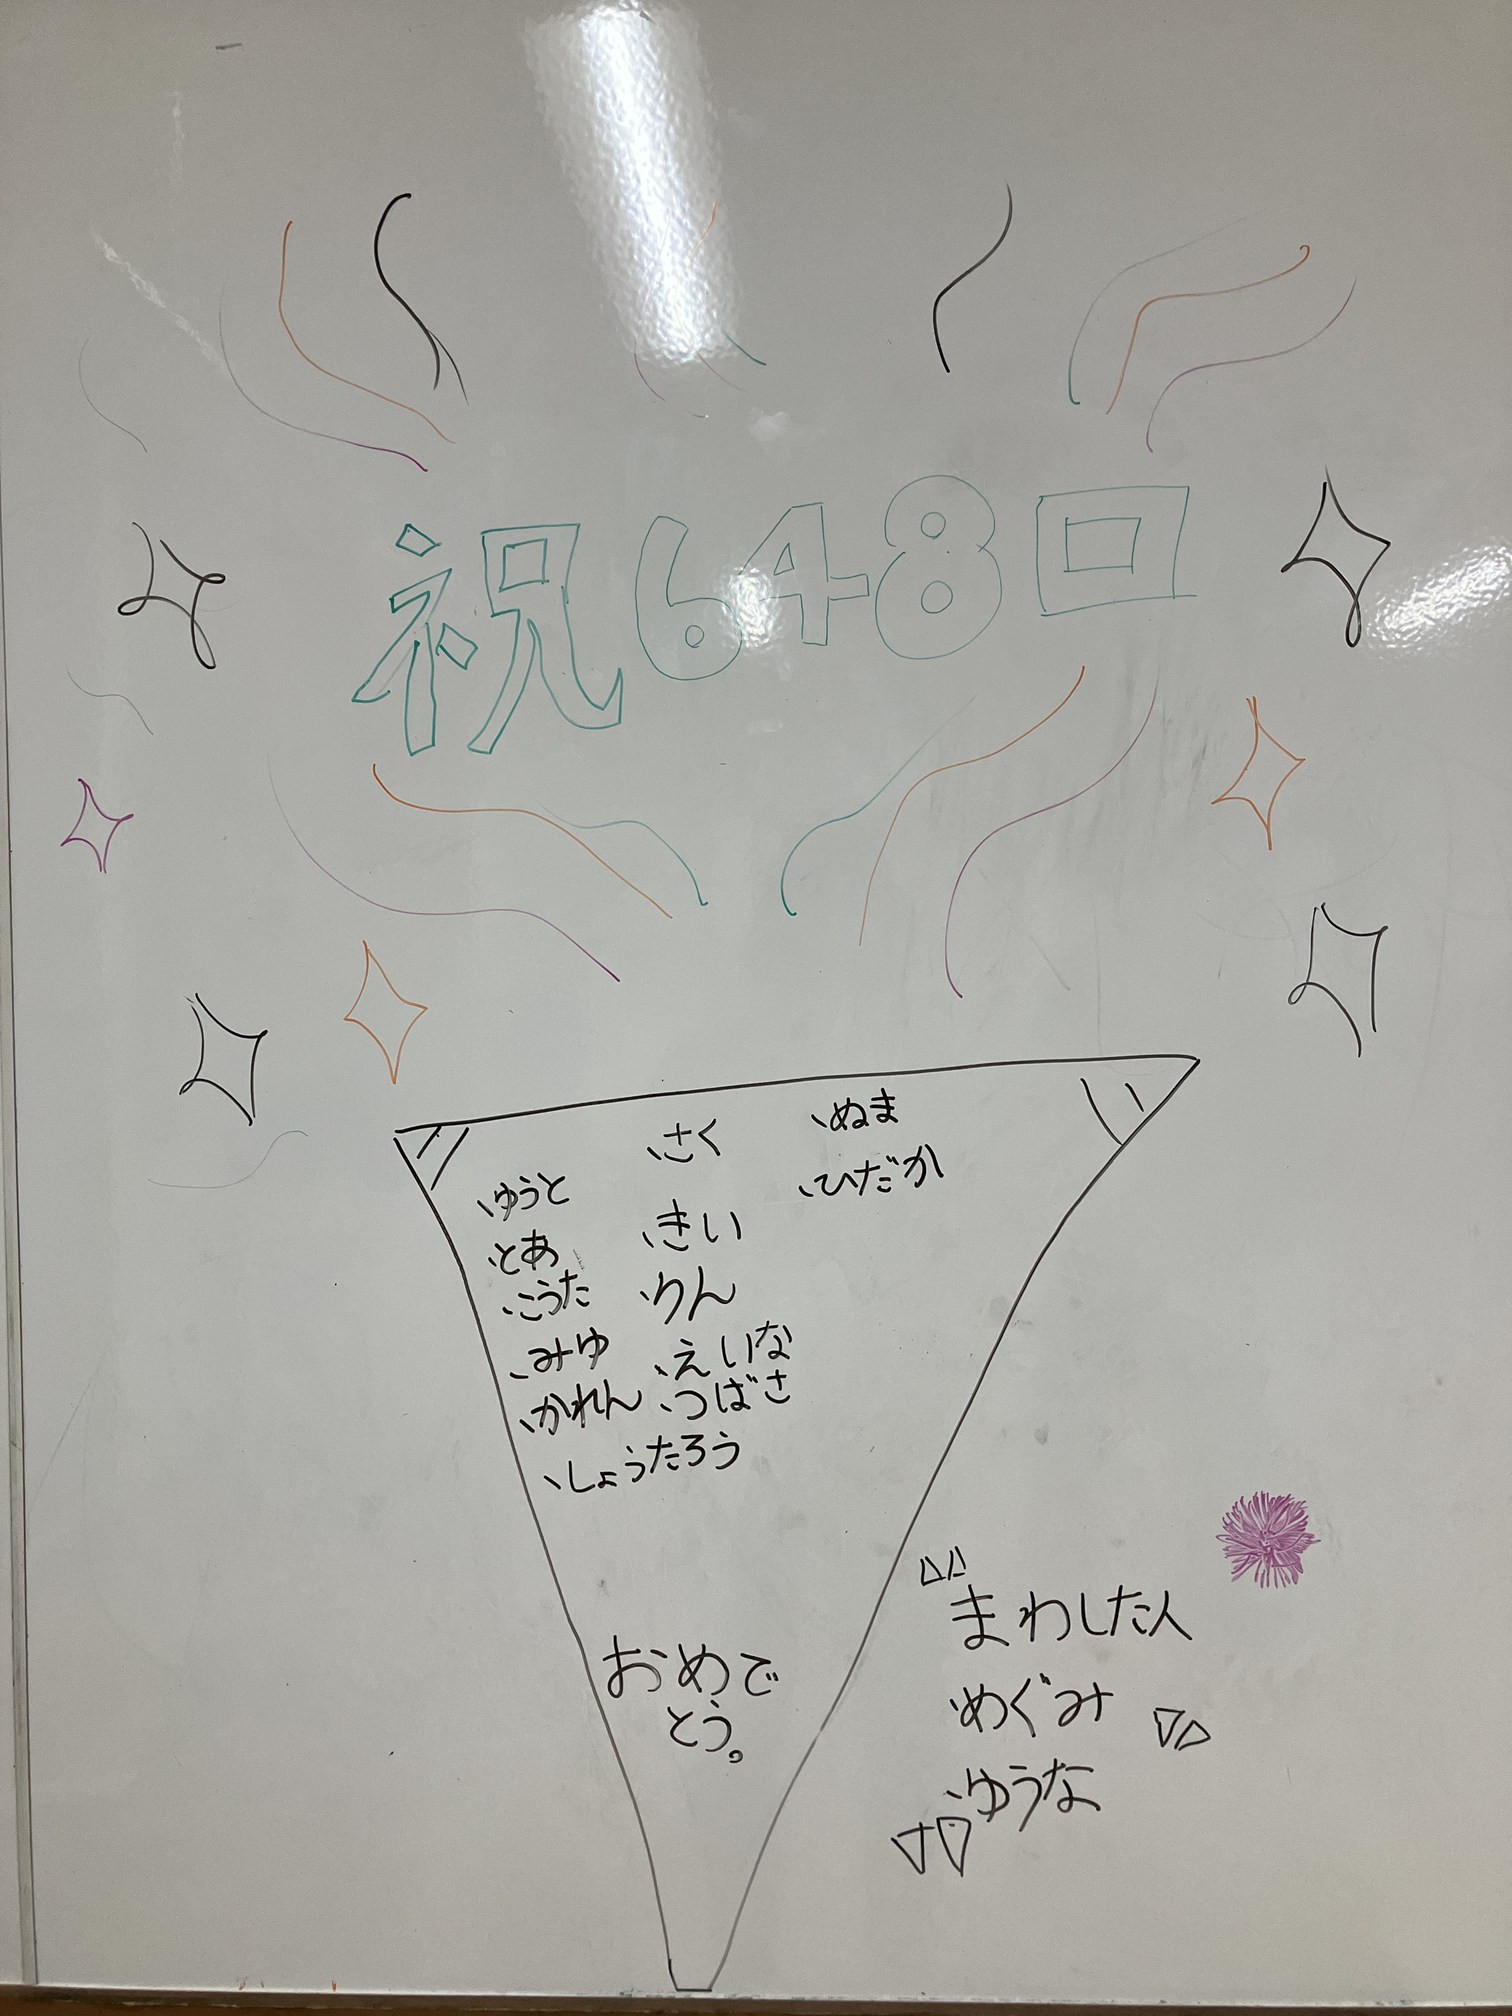 祝648回
、ゆうと
、とあ
、こうた
、みゆ
、かれん
、しょうたろう
、さく
、きい
、りん
、えいな
、つばさ
、ぬま
、ひだか
おめで
とう。
まわした人
、めぐみ
、ゆうな